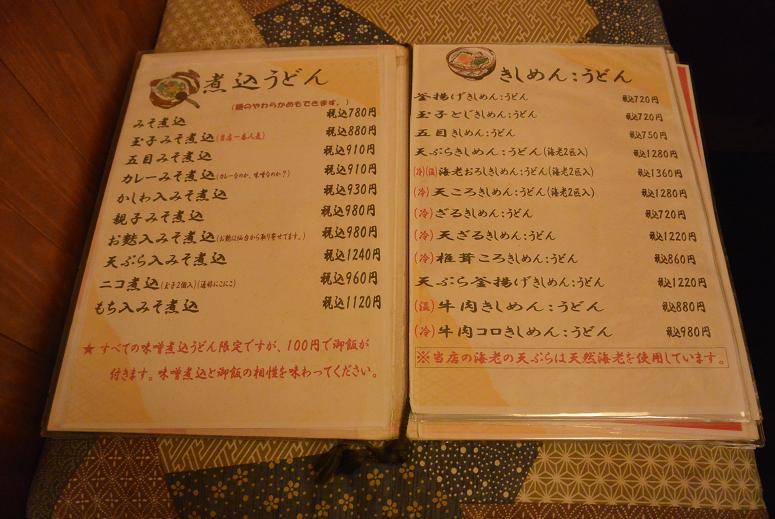 煮込うどん
(麺のやわらかめもできます。)
みそ煮込 税込780円
玉子みそ煮込(当店一番人気) 税込880円
五目みそ煮込 税込910円
カレーみそ煮込(カレーなのか、味噌なのか?) 税込910円
かしわ入みそ煮込 税込930円
親子みそ煮込 税込980円
お麩入みそ煮込(お麩は仙台から取り寄せてます。) 税込980円
天ぷら入みそ煮込 税込1240円
ニコ煮込(玉子2個入)(通称にこにこ) 税込960円
もち入みそ煮込 税込1120円
★すべての味噌煮込うどん限定ですが、100円で御飯が
付きます。味噌煮込と御飯の相性を味わってください。
きしめん:うどん
釜揚げきしめん:うどん 税込720円
玉子とじきしめん:うどん 税込720円
五目きしめん:うどん 税込750円
天ぷらきしめん:うどん(海老2匹入) 税込1280円
(冷)(温)海老おろしきしめん:うどん(海老2匹入) 税込1360円
(冷)天ころきしめん:うどん(海老2匹入) 税込1280円
(冷)ざるきしめん:うどん 税込720円
(冷)天ざるきしめん:うどん 税込1220円
(冷)椎茸ころきしめん:うどん 税込860円
天ぷら釜揚げきしめん:うどん 税込1220円
(温)牛肉きしめん:うどん 税込880円
(冷)牛肉コロきしめん:うどん 税込980円
※当店の海老の天ぷらは天然海老を使用しています。